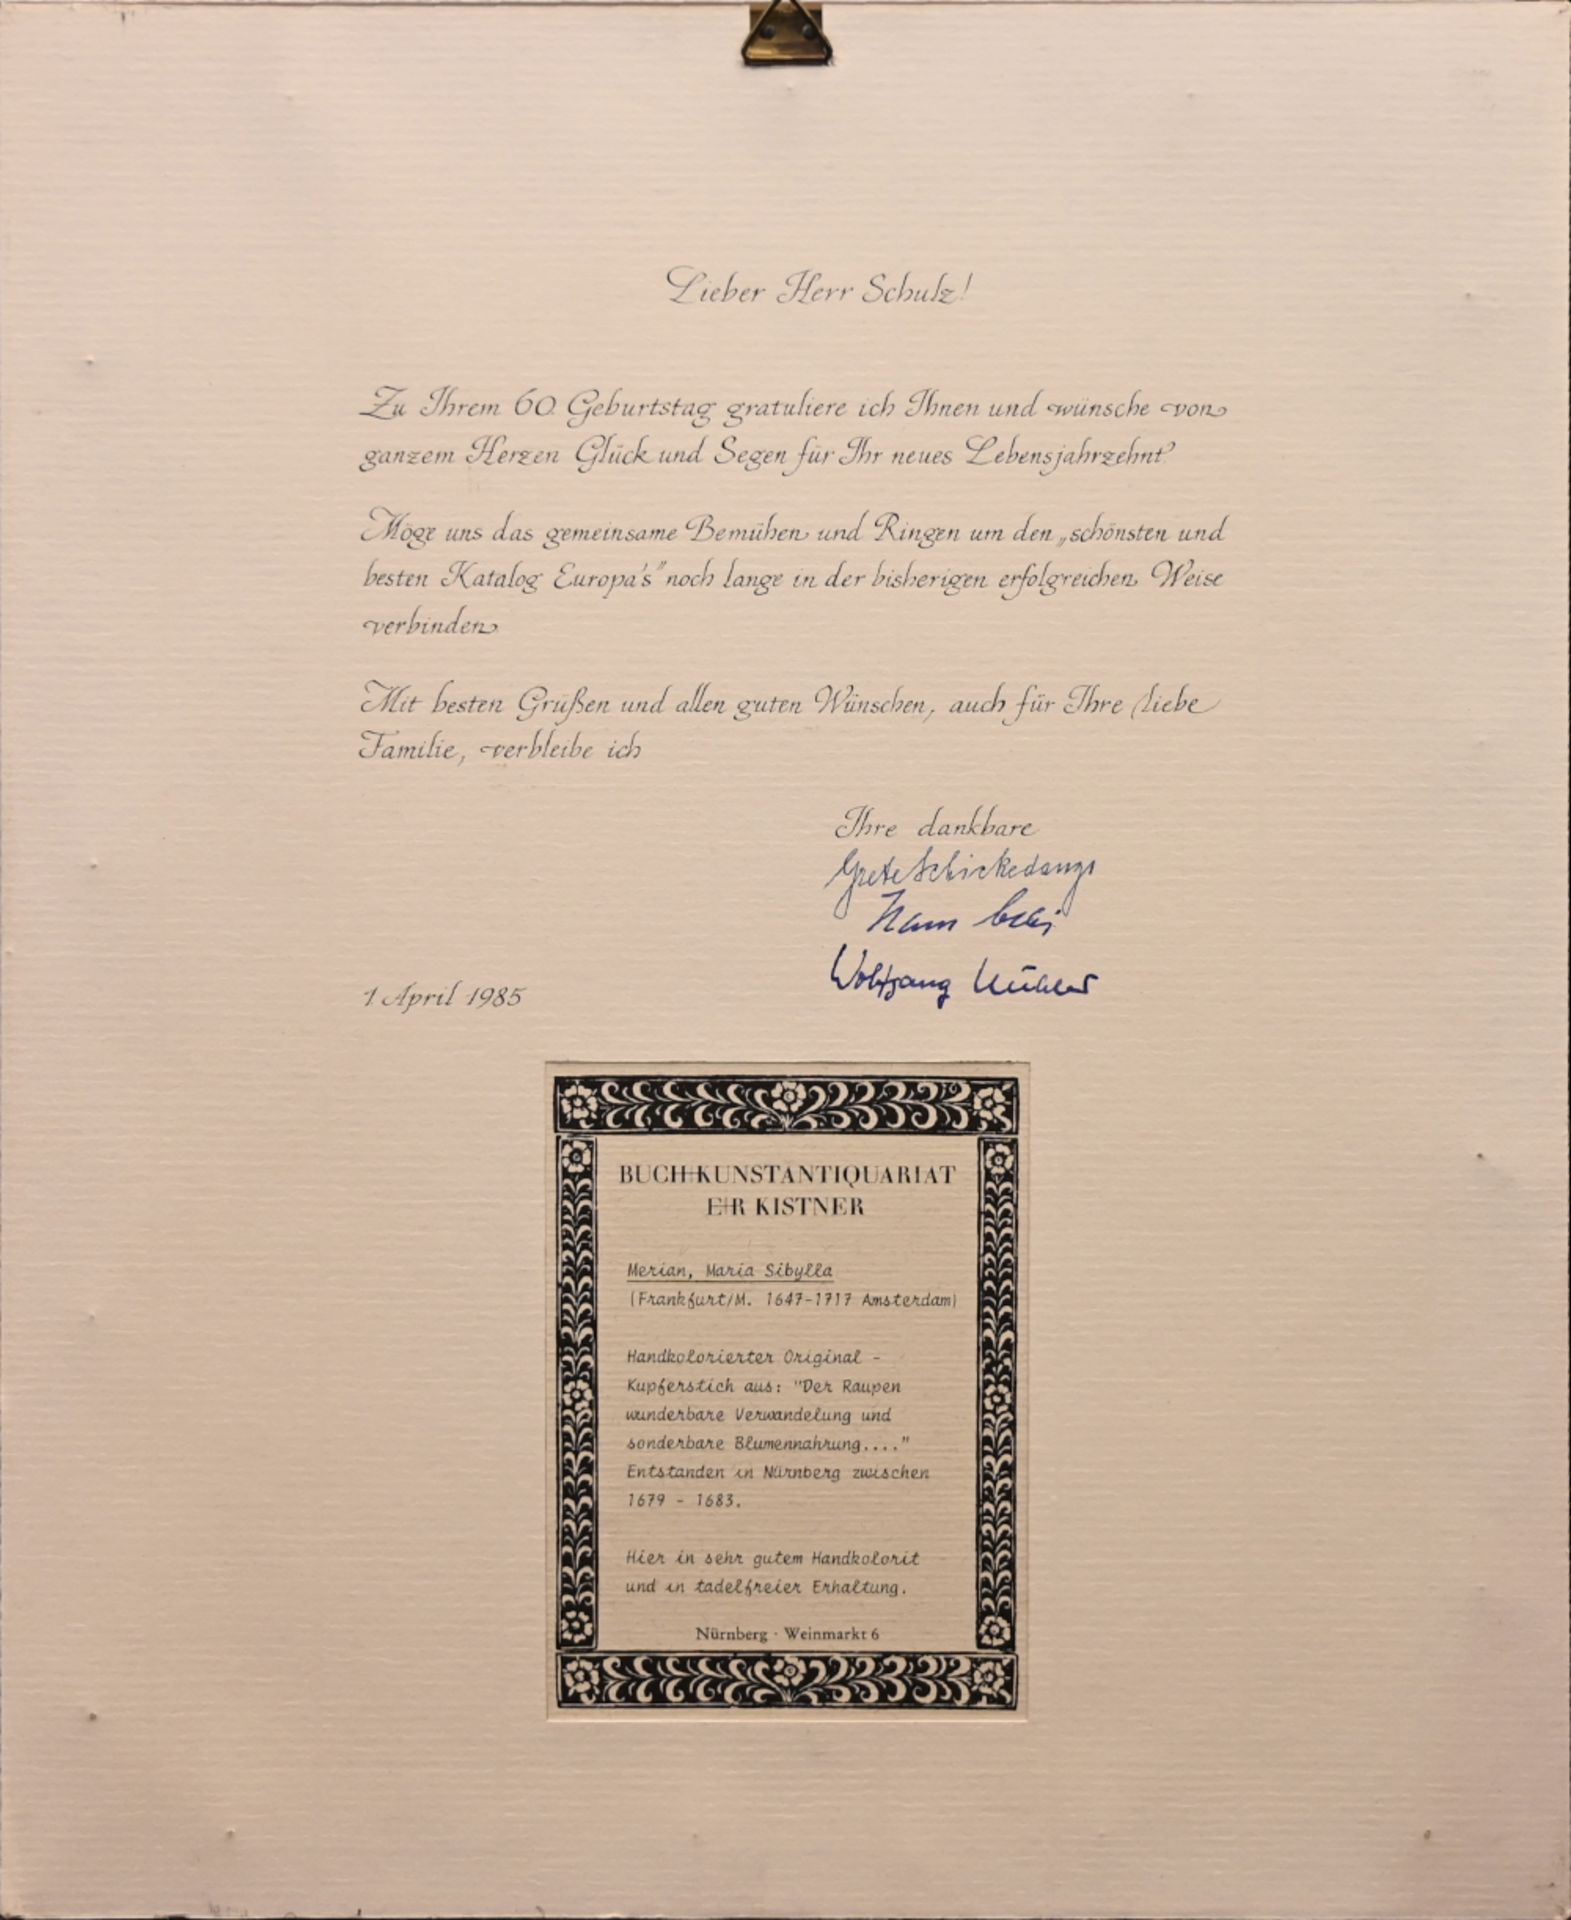 Lieber Herr Schulz!
Zu Ihrem 60. Geburtstag gratuliere ich Ihnen und wünsche von
ganzem Herzen Glück und Segen für Ihr neues Lebensjahrzehnt.
Möge uns das gemeinsame Bemühen und Ringen um den „schönsten und
besten Katalog Europa's" noch lange in der bisherigen erfolgreichen Weise
verbinden.
Mit besten Grüßen und allen guten Wünschen, auch für Ihre liebe
Familie, verbleibe ich
Ihre dankbare
Grete Schickedanz
Hans
Wolfgang
1. April 1985
BUCH+KUNSTANTIQUARIAT
E+R KISTNER
Merian, Maria Sibylla
(Frankfurt/M. 1647-1717 Amsterdam)
Handkolorierter Original -
Kupferstich aus: "Der Raupen
wunderbare Verwandelung und
sonderbare Blumennahrung...."
Entstanden in Nürnberg zwischen
1679 - 1683.
Hier in sehr gutem Handkolorit
und in tadelfreier Erhaltung.
Nürnberg · Weinmarkt 6